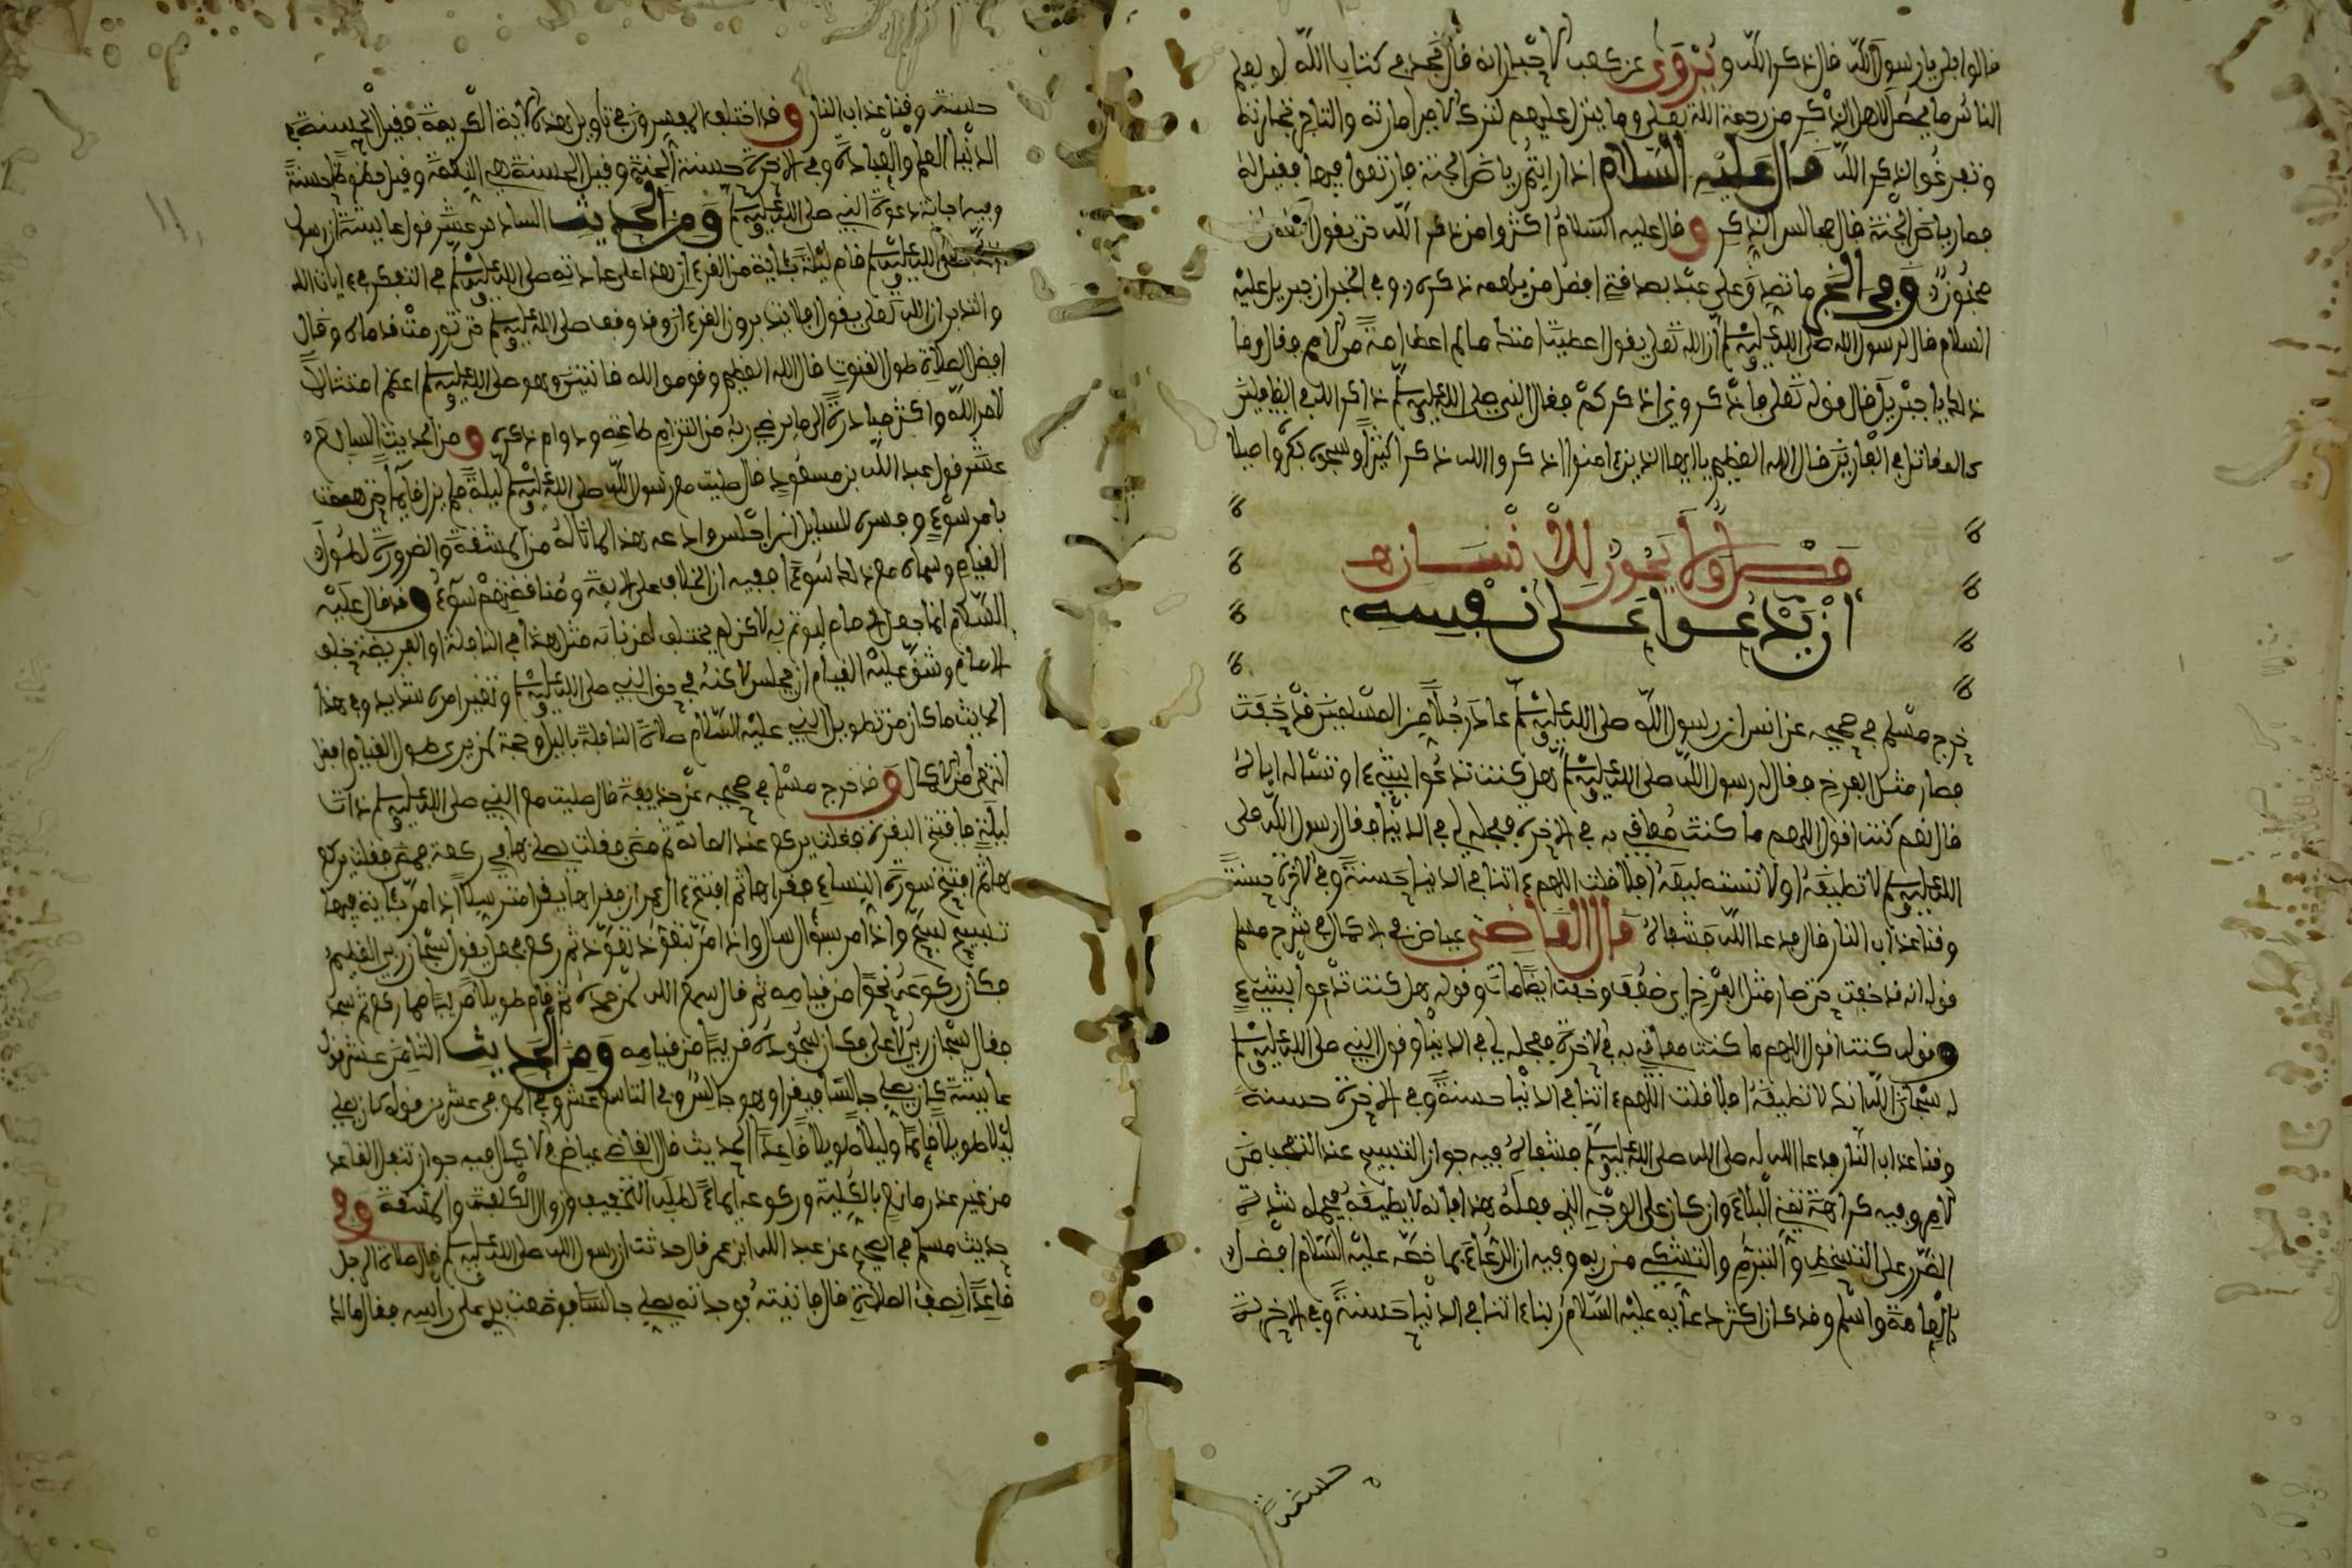 قالوا بلى يا رسول الله قال ذكر الله ويروى عن كعب الاحبار انه قال نجد في كتاب الله لو يعلم
الناس ما يحصل لاهل الذكر من رحمة الله تعلى وما ينزل عليهم لترك الامير امارته والتاجر تجارته
وتفرغوا لذكر الله قال عليه السلام اذا رايتم رياض الجنة فارتعوا فيها فقيل له
فما رياض الجنة قال مجالس الذكر وقال عليه السلام اكثروا من ذكر الله حتى يقول
مجنون وفي الخبر ما تصدق على عبد بصدقة افضل من يلهمه ذكره وفي الخبر ان جبريل عليه
السلام قال لرسول الله صلى الله عليه وسلم ان الله تعلى يقول اعطيت امتك ما لم اعط امة من الامم فقال وما
ذلك يا جبريل قال قوله تعلى فاذكروني اذكركم فقال النبي صلى الله عليه وسلم ذاكر الله في الغافلين
كالمقاتل في الفارين قال الله العظيم يا ايها الذين ءامنوا اذكروا الله ذكرا كثيرا وسبحوه بكرة واصيلا
فصل ولا يجوز للانسان
ان يدعوا على نفسه
خرج مسلم في صحيحه عن انس ان رسول الله صلى الله عليه وسلم عاد رجلا من المسلمين قد خفت
فصار مثل الفرخ فقال له رسول الله صلى الله عليه وسلم هل كنت تدعوا بشيء او تسأله اياه
قال نعم كنت اقول اللهم ما كنت معاقبي به في الاخرة فعجله لي في الدنيا فقال رسول الله صلى
الله عليه وسلم لا تطيقه او لا تستطيعه افلا قلت اللهم ءاتنا في الدنيا حسنة وفي الاخرة حسنة
وقنا عذاب النار قال فدعا الله فشفاه قال القاضي عياض في الاكمال في شرح مسلم
قوله انه قد خفت حتى صار مثل الفرخ اي ضعف وخفت ايضا مات وقوله هل كنت تدعوا بشيء
وقوله كنت اقول اللهم ما كنت معاقبي به في الاخرة فعجله لي في الدنيا وقول النبي صلى الله عليه وسلم
له سبحان الله انك لا تطيقه افلا قلت اللهم ءاتنا في الدنيا حسنة وفي الاخرة حسنة
وقنا عذاب النار فدعا الله له صلى الله عليه وسلم فشفاه فيه جواز التسبيح عند التعجب من
الامر وفيه كراهة تمني البلاء وان كان على الوجه الذي فعله هذا فانه لا يطيقه فيحمله شدة
الضرر على التسخط والتبرم والتشكي من ربه وفيه ان الدعاء بما خصه عليه السلام افضل
للعامة واسلم وقد كان اكثر دعائه عليه السلام ربنا ءاتنا في الدنيا حسنة وفي الاخرة
حسنة
حسنة وقنا عذاب النار وقد اختلف المفسرون في تاويل هذه الاية الكريمة فقيل الحسنة في
الدنيا العلم والعبادة وفي الاخرة حسنة الجنة وقيل الحسنة هي النعمة وقيل حظوظ حسنة
وفيه اجابة دعوة النبي صلى الله عليه وسلم ومن الحديث السادس عشر قول عايشة ان رسول
الله صلى الله عليه وسلم قام ليلة بئاية من القرءان هذا على عادته صلى الله عليه وسلم في التفكر في ءايات الله
والتدبر ان الله تعلى يقول افلا يتدبرون القرءان وقد وقف صلى الله عليه وسلم حتى تورمت قدماه وقال
افضل الصلاة طول القنوت قال الله العظيم وقوموا لله قانتين وهو صلى الله عليه وسلم اعظم امتثالا
لامر الله واكثر مبادرة الى ما يرضي ربه من التزام طاعته ودوام ذكره ومن الحديث السابع
عشر قول عبد الله بن مسعود قال صليت مع رسول الله صلى الله عليه وسلم ليلة فلم يزل قايما حتى هممت
بامر سوء وفسره للسايل ان اجلس وادعه هذا لما ناله من المشقة والضرورة لطول
القيام وسماه مع ذلك سوءا ففيه ان الخلاف على الايمة ومنافقتهم سوء وقد قال عليه
السلام انما جعل الامام ليوتم به لاكن لم يختلف العزيمة مثل هذا في النافلة او الفريضة خلف
الامام وشق عليه القيام ان يجلس لاكنه في حق النبي صلى الله عليه وسلم وتغيير امره شديد وفي هذا
الحديث ما كان من تطويل النبي عليه السلام صلاة النافلة بالليل وحجة لمن يرى طول القيام افضل
انتهى من الاكمال وقد خرج مسلم في صحيحه عن حذيفة قال صليت مع النبي صلى الله عليه وسلم ذات
ليلة فافتتح البقرة فقلت يركع عند الماية ثم مضى فقلت يصلي بها في ركعة فمضى فقلت يركع
بها ثم افتتح سورة النساء فقراها ثم افتتح ءال عمران فقراها يقرا مترسلا اذا مر بئاية فيها
تسبيح سبح واذا مر بسؤال سال واذا مر بتعوذ تعوذ ثم ركع فجعل يقول سبحان ربي العظيم
فكان ركوعه نحوا من قيامه ثم قال سمع الله لمن حمده ثم قام طويلا قريبا مما ركع ثم سجد
فقال سبحان ربي الاعلى فكان سجوده قريبا من قيامه ومن الحديث الثامن عشر قول
عايشة كان يصلي جالسا فيقرا وهو جالس وفي التاسع عشر وفي الموفى عشرين قوله كان يصلي
ليلا طويلا قايما وليلا طويلا قاعدا الحديث قال القاضي عياض في الاكمال فيه جواز تنفل القاعد
من غير عذر مانع بالكلية وركوعه ايماء لطلب التخفيف وزوال الكلفة والمشقة وفي
حديث مسلم في الصحيح عن عبد الله ابن عمر قال حدثت ان رسول الله صلى الله عليه وسلم قال صلاة الرجل
قاعدا نصف الصلاة قال فاتيته فوجدته يصلي جالسا فوضعت يدي على راسه فقال مالك